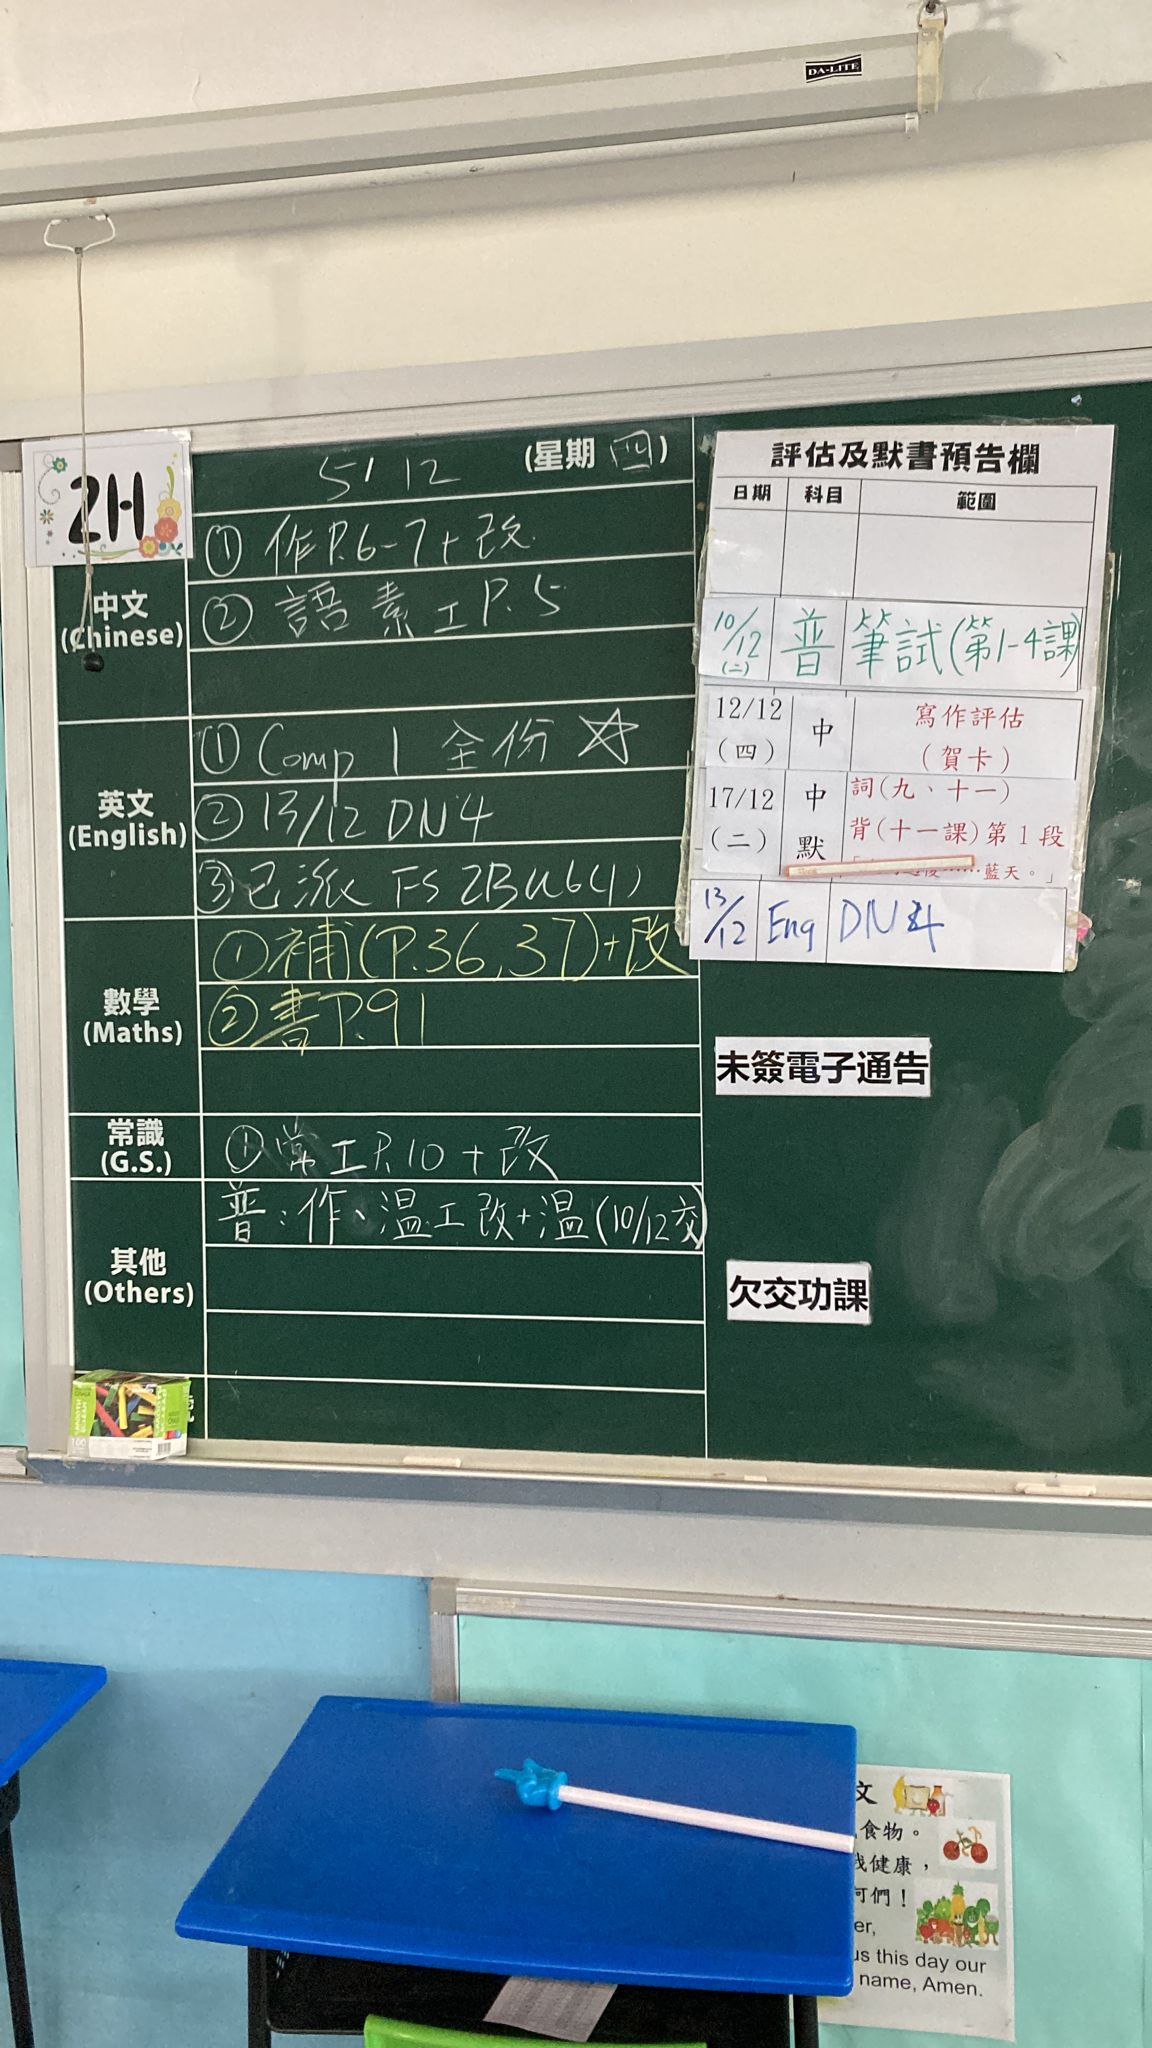 DA-LITE
2H
5/12 (星期四)
中文
(Chinese)
① 作P.6-7+改
② 語素工P.5
英文
(English)
① Comp 1 全份 ☆
② 13/12 DN4
③ 已派 FS 2B U6(4)
數學
(Maths)
① 補(P.36,37)+改
② 書P.91
常識
(G.S.)
① 常工P.10+改
其他
(Others)
普:作、溫工改+溫(10/12交)
評估及默書預告欄
日期 科目 範圍
10/12 (二) 普 筆試(第1-4課)
12/12 (四) 中 寫作評估 (賀卡)
17/12 (二) 中默 詞(九、十一)
背(十一課)第1段
……藍天。」
13/12 Eng DN4
未簽電子通告
欠交功課
文
食物。
我健康,
阿們!
er,
us this day our
name, Amen.